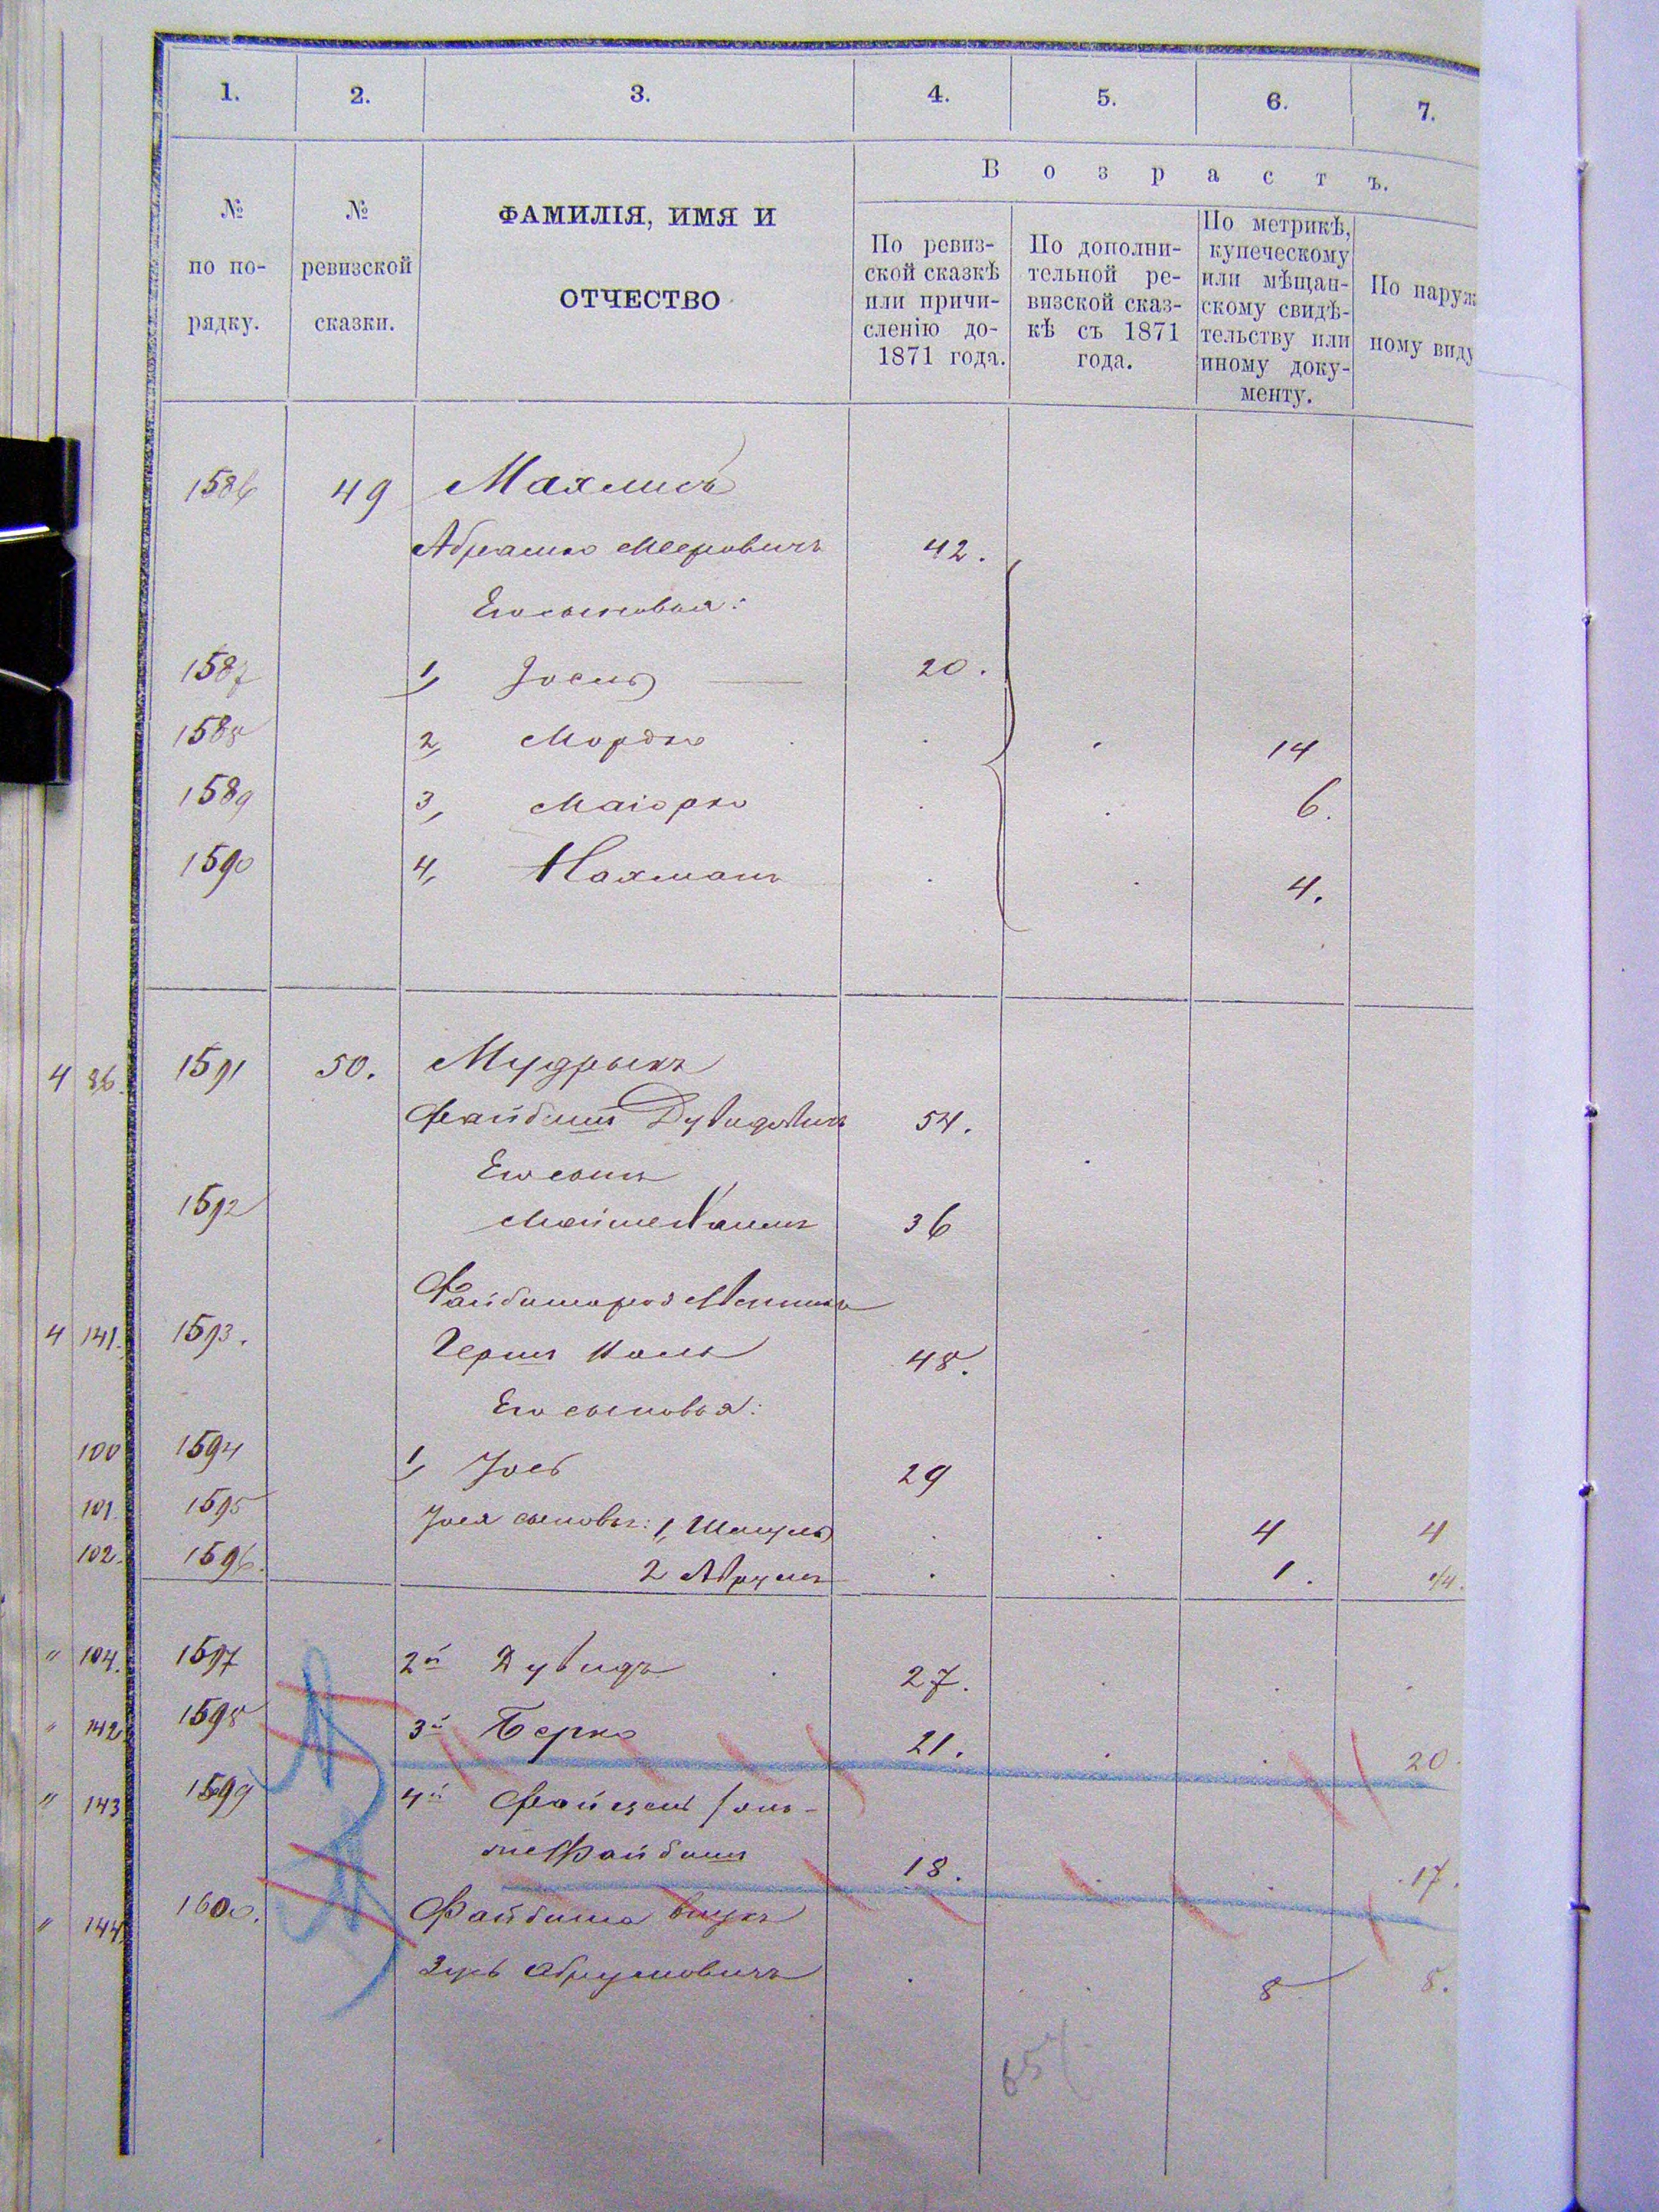 1. 2. 3. 4. 5. 6. 7.
Возрастъ.
№ по по-рядку.
№ ревизской сказки.
ФАМИЛІЯ, ИМЯ И
ОТЧЕСТВО
По ревиз-
ской сказкѣ
или причи-
сленію до-
1871 года.
По дополни-
тельной ре-
визской сказ-
кѣ съ 1871
года.
По метрикѣ,
купеческому
или мѣщан-
скому свидѣ-
тельству или
иному доку-
менту.
По наруж
ному виду
1586 49 Махлисъ
Абрамко Мееровичъ 42.
Его сыновья:
1587 1, Іосль 20.
1588 2, Мордко 14
1589 3, Маіорко 6.
1590 4, Нахманъ 4.
4 86. 1591 50. Мудрыкъ
Файбишъ Дувидовичъ 54.
Его сынъ
1592 36
Файбиша
4 141. 1593. Гершъ 48.
Его сыновья:
100 1594 1, Іось 29
101. 1595 Іося сыновья: 1, Шмуль 4 4
102. 1596. 2 Аврумъ 1.
" 104. 1597 2й Дувидъ 27.
" 142 1598 3й Берко 21. 20
" 143 1599 4й
Файбишъ 18. 17.
" 144 1600. Файбиша внукъ
Зусь Абрумовичъ 8 8.
657